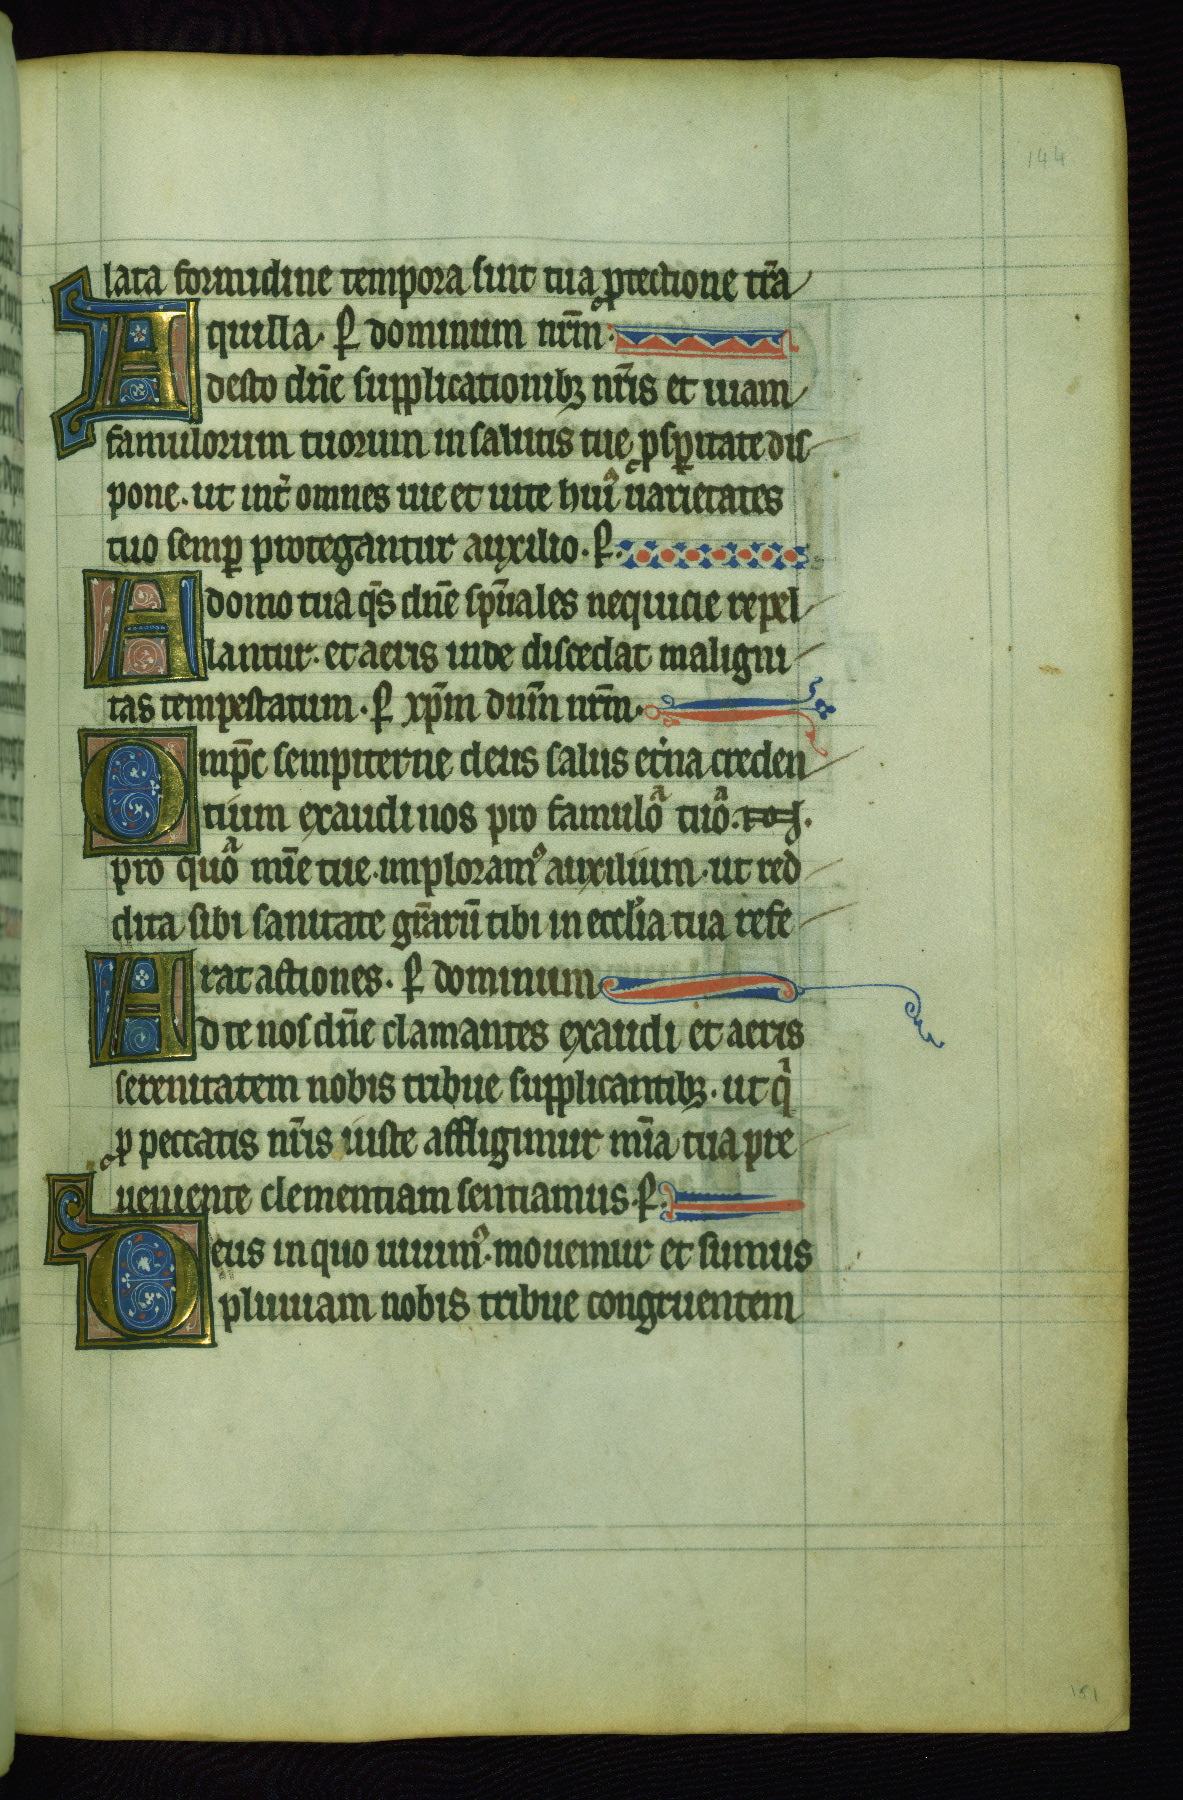 144
lata formidine tempora sint tua ꝓtectione tͬā
quilla. ꝑ dominum nr̄m.
Adesto dn̄e supplicationibꝫ nr̄is et uiam
famulorum tuorum in salutis tue ꝓsꝑitate dis
pone. ut int̄ omnes uie et uite huiꝰ uarietates
tuo semꝑ protegantur auxilio. ꝑ.
A domo tua q̄s dn̄e sp̄uales nequicie repel
lantur. et aeris inde discedat maligni
tas tempestatum. ꝑ xp̄m dnm̄ nrm̄.
Omp̄c sempiterne deus salus et̄na creden
tium exaudi nos pro famuloᷓ tuoᷓ.
pro quoᷓ mīe tue imploramꝰ auxilium. ut red
dita sibi sanitate gr̄arū tibi in ecclīa tua refe
rat actiones. ꝑ dominum
Ad te nos dn̄e clamantes exaudi et aeris
serenitatem nobis tribue supplicantibꝫ. ut qͥ
ꝓ peccatis nr̄is iuste affligimur mīa tua pre
ueniente clementiam sentiamus. ꝑ.
Deus in quo uiuimꝰ. mouemur et sumus
pluuiam nobis tribue congruentem
151